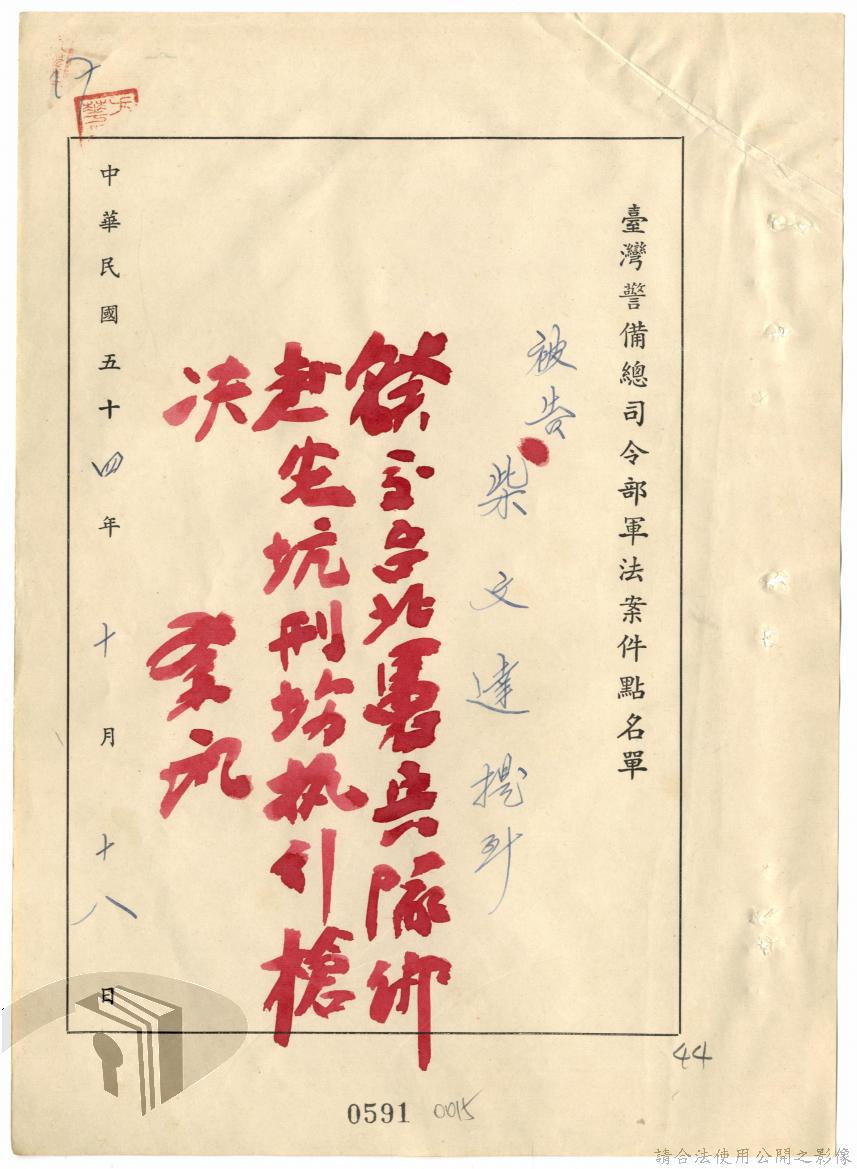 臺灣警備總司令部軍法案件點名單
被告
柴文達 提到
發交台北憲兵隊綁
赴安坑刑場执行槍
决
中華民國五十四年十月十八日
44
0591 0015
請合法使用公開之影像